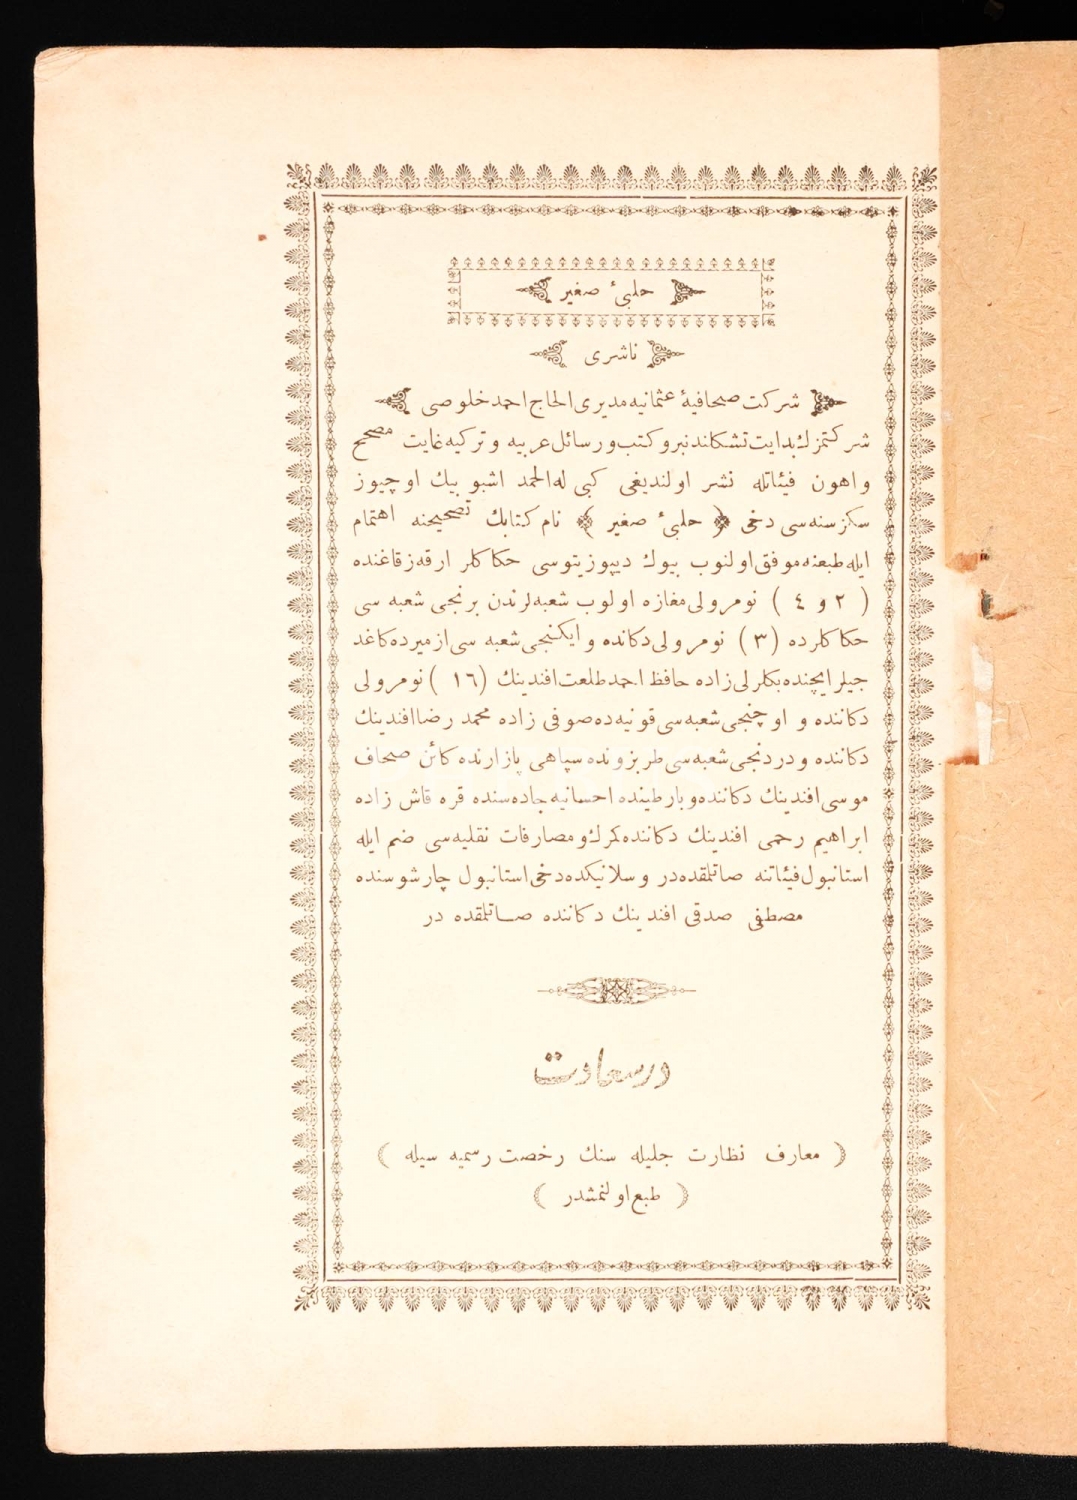 حلبیٔ صغیر
ناشری
شرکت صحافیهٔ عثمانیه مدیری الحاج احمد خلوصی
شرکتمزك بدایت تشکلندنبرو کتب و رسائل عربیه و ترکیه غایت مصحح
و اهون فیئاتله نشر اولندیغی کبی لله الحمد اشبو بیك اوچیوز
سکز سنه سی دخی ﴿ حلبیٔ صغیر ﴾ نام کتابك تصحیحنه اهتمام
ایله طبعنه موفق اولنوب بیوك دیپوزیتوسی حکاکلر ارقه زقاغنده
( ٢ و ٤ ) نومرولی مغازه اولوب شعبه لرندن برنجی شعبه سی
حکاکلرده ( ٣ ) نومرولی دکانده و ایکنجی شعبه سی ازمیرده کاغد
جیلر ایچنده بکلرلی زاده حافظ احمد طلعت افندینك ( ١٦ ) نومرولی
دکاننده و اوچنجی شعبه سی قونیه ده صوفی زاده محمد رضا افندینك
دکاننده و دردنجی شعبه سی طربزونده سپاهی پازارنده کائن صحاف
موسی افندینك دکاننده و بارطینده احسانیه جاده سنده قره قاش زاده
ابراهیم رحمی افندینك دکاننده کمرك و مصارفات نقلیه سی ضم ایله
استانبول فیئاتنه صاتلمقده در و سلانیکده دخی استانبول چارشوسنده
مصطفی صدقی افندینك دکاننده صاتلمقده در
درسعادت
( معارف نظارت جلیله سنك رخصت رسمیه سیله )
( طبع اولنمشدر )